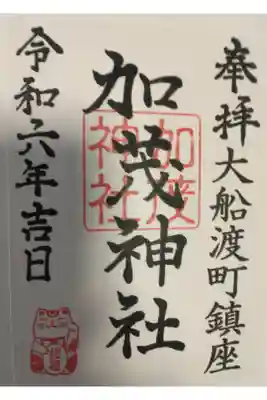 奉拝大船渡町鎮座
加茂神社
加茂神社
令和六年吉日